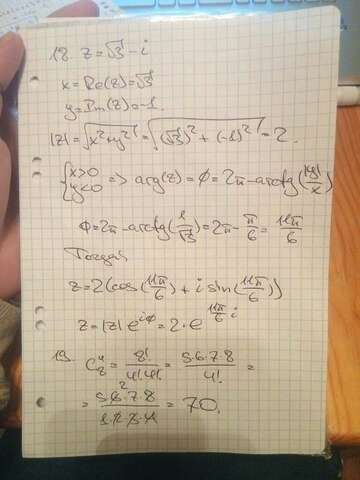 12. z = √3 - i
x = Re(z) = √3
y = Im(z) = -1.
|z| = √(x² + y²) = √((√3)² + (-1)²) = 2.
{x>0 y<0 => arg(z) = φ = 2π - arctg(|y|/x)
φ = 2π - arctg(1/√3) = 2π - π/6 = 11π/6
Тогда
z = 2(cos(11π/6) + i sin(11π/6))
z = |z| e^{iφ} = 2·e^{11π/6 i}
13. C_8^4 = 8!/(4!4!) = 5·6·7·8/4! =
= 5·6·7·8/(1·2·3·4) = 70.